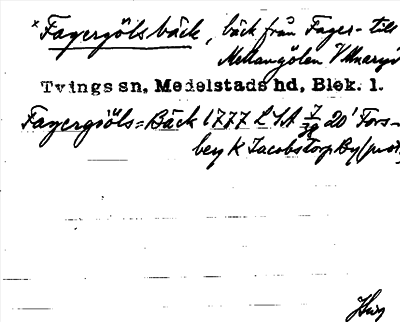 *Fagergöls bäck, bäck från Fager- till
Mellangölen V Mnaryd
Tvings sn, Medelstads hd, Blek. l.
Fagergiöls=Bäck 1777 LSA 7/38 20' Fors-
bey K Jacobstorp By (prot.)